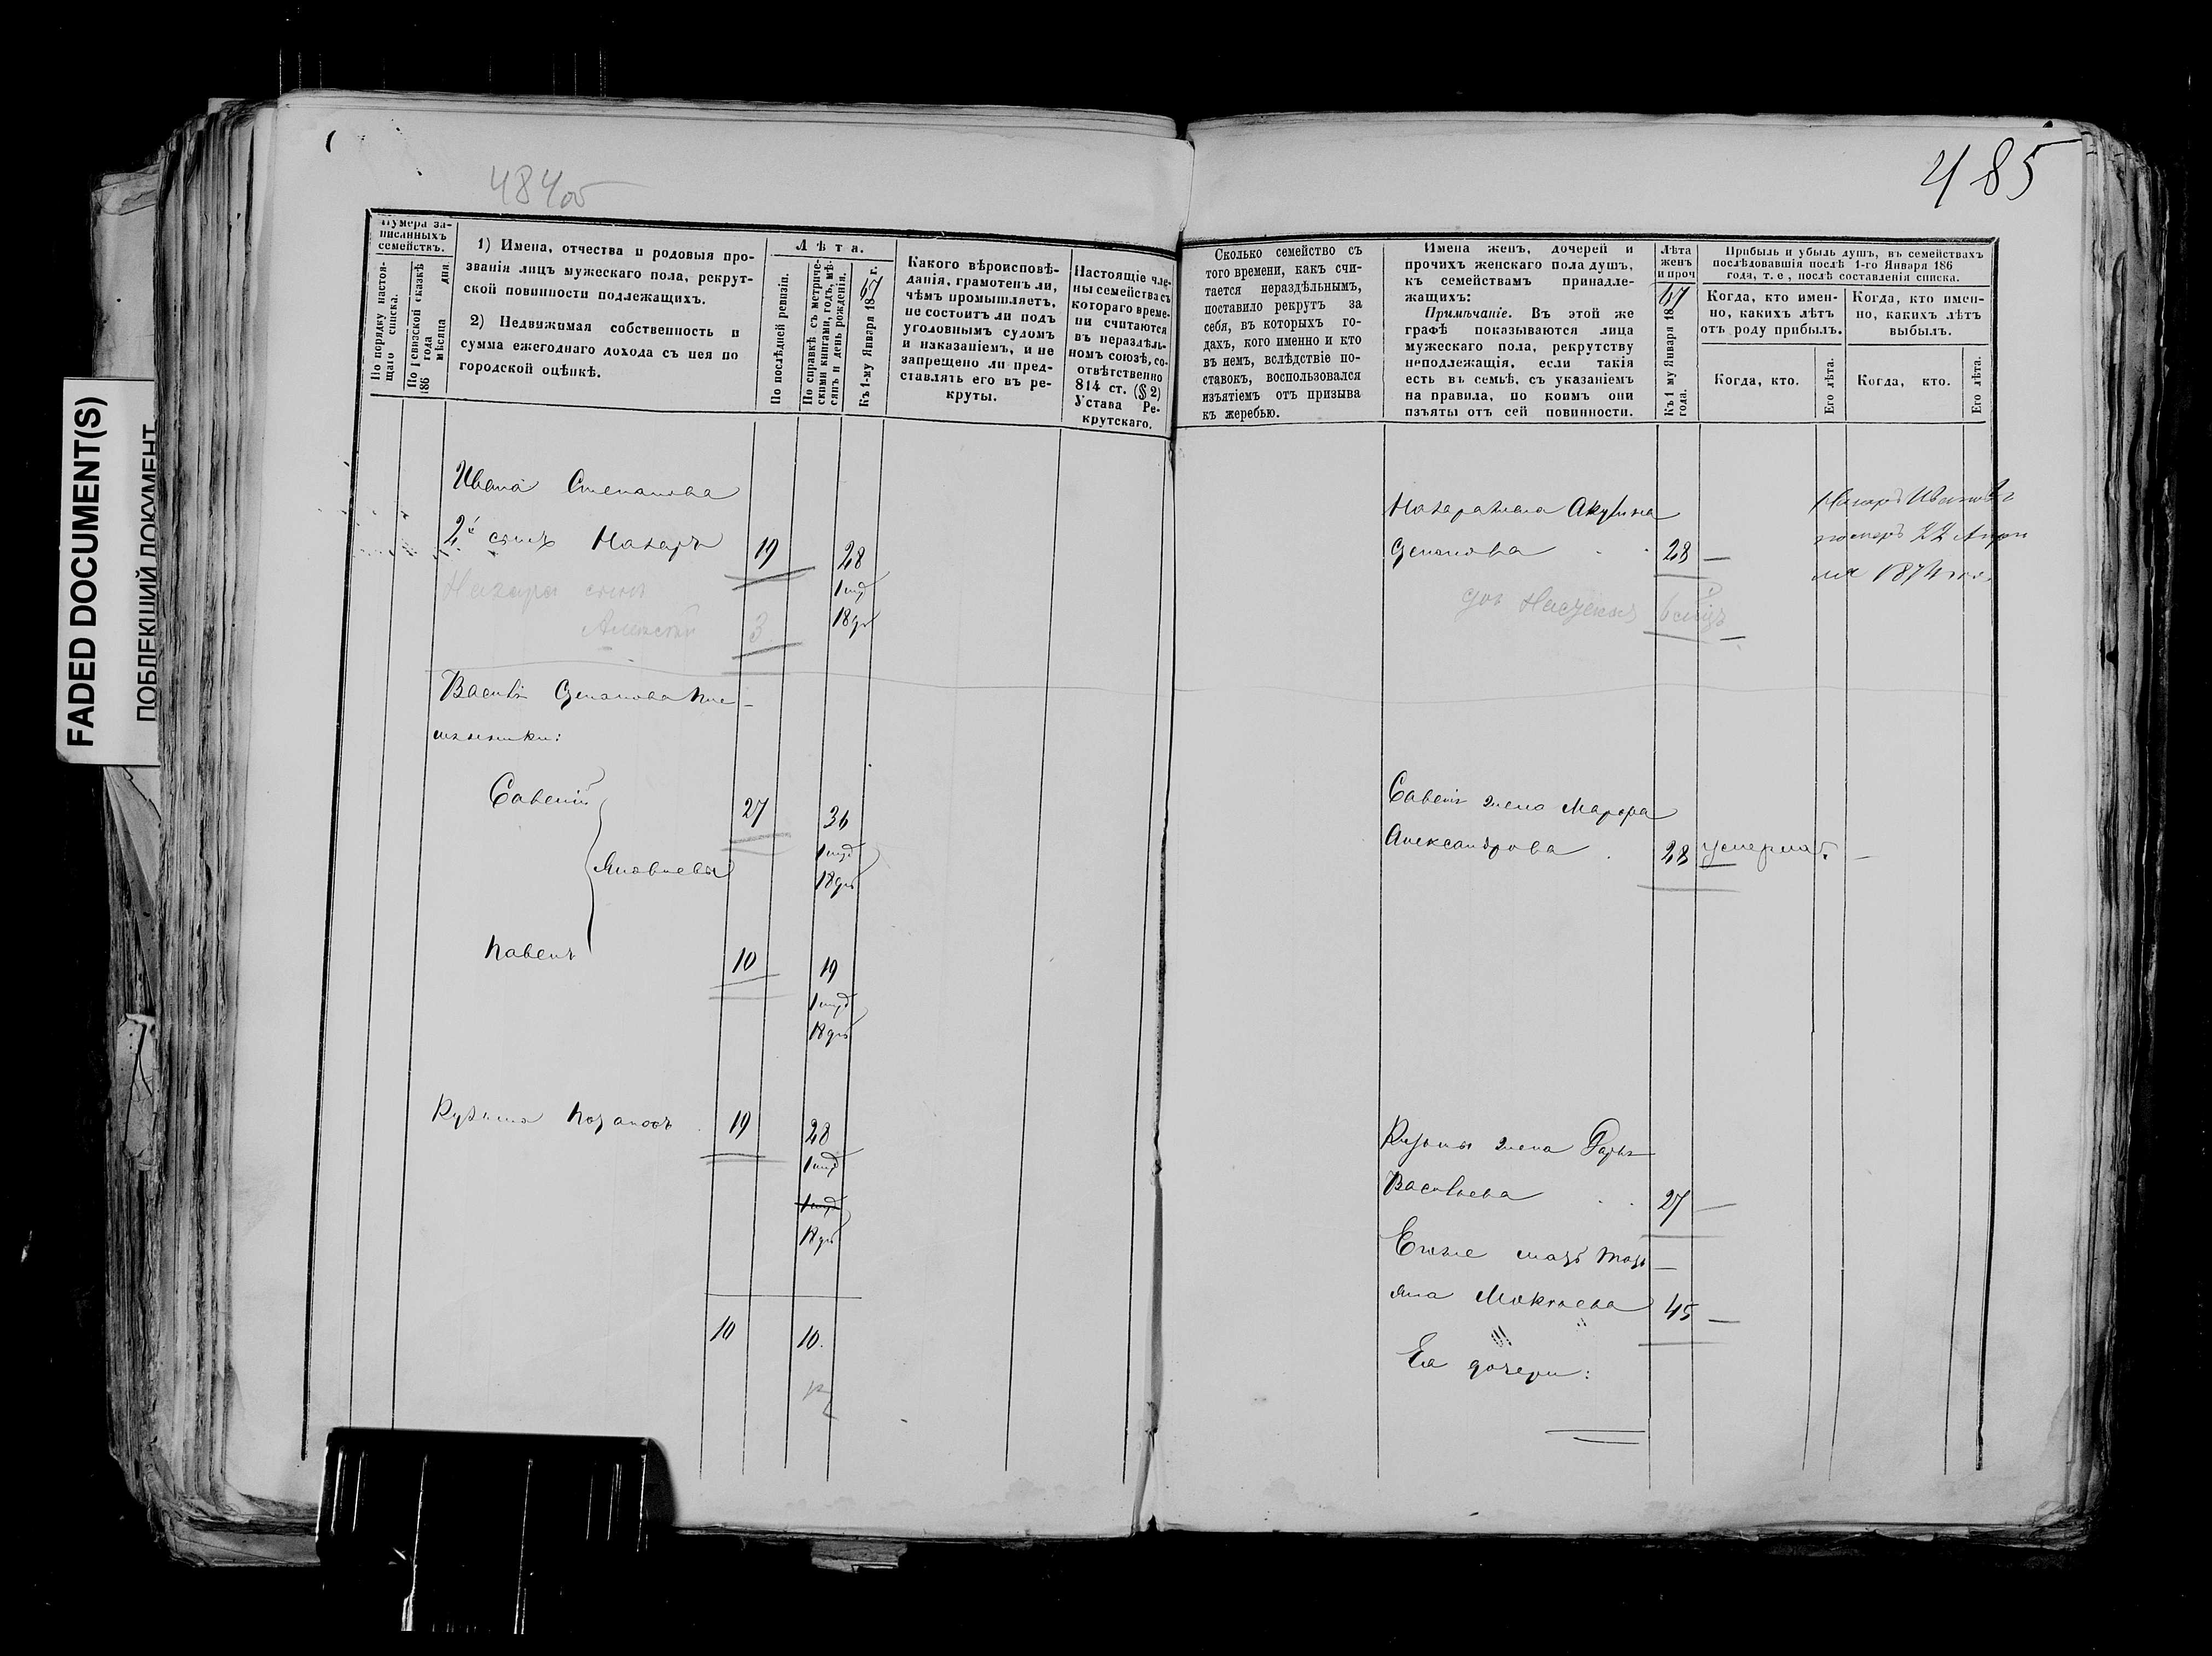 FADED DOCUMENT(S)
ПОБЛЕКШИЙ ДОКУМЕНТ
484об
485
Нумера за-
писанныхъ
семействъ.
По порядку настоя-
щаго списка.
По Ревизской сказкѣ
186 года
мѣсяца дня
1) Имена, отчества и родовыя про-
званія лицъ мужескаго пола, рекрут-
ской повинности подлежащихъ.
2) Недвижимая собственность и
сумма ежегоднаго дохода съ нея по
городской оцѣнкѣ.
Лѣта.
По послѣдней ревизіи.
По справкѣ съ метриче-
скими книгами, годъ, мѣ-
сяцъ и день рожденія.
Къ 1-му Января 1867 г.
Какого вѣроисповѣ-
данія, грамотенъ ли,
чѣмъ промышляетъ,
не состоитъ ли подъ
уголовнымъ судомъ
и наказаніемъ, и не
запрещено ли пред-
ставлять его въ ре-
круты.
Настоящіе чле-
ны семейства съ
котораго време-
ни считаются
въ нераздѣль-
номъ союзѣ, со-
отвѣтственно
814 ст. (§ 2)
Устава Ре-
крутскаго.
Сколько семейство съ
того времени, какъ счи-
тается нераздѣльнымъ,
поставило рекрутъ за
себя, въ которыхъ го-
дахъ, кого именно и кто
въ немъ, вслѣдствіе по-
ставокъ, воспользовался
изъятіемъ отъ призыва
къ жеребью.
Имена женъ, дочерей и
прочихъ женскаго пола душъ,
къ семействамъ принадле-
жащихъ:
Примѣчаніе. Въ этой же
графѣ показываются лица
мужескаго пола, рекрутству
неподлежащія, если такія
есть въ семьѣ, съ указаніемъ
на правила, по коимъ они
изъяты отъ сей повинности.
Лѣта
женъ
и проч
Къ 1 му Января 1867
года.
Прибыль и убыль душъ, въ семействахъ
послѣдовавшія послѣ 1-го Января 186
года, т. е, послѣ составленія списка.
Когда, кто имен-
но, какихъ лѣтъ
отъ роду прибылъ.
Когда, кто имен-
но, какихъ лѣтъ
выбылъ.
Когда, кто.
Его лѣта.
Когда, кто.
Его лѣта.
Ивана Степанова
2й сынъ Назаръ 19 28
Назара сынъ
Алексѣй 3
Василія Степанова пле-
мянники:
Савелій 27 36
Яковлевы
Павелъ 10 19
Кузьма Потаповъ 19 28
10 10.
Назара жена Акулина
Степанова 28
Назаръ Ивановъ
померъ 22 Апрѣ
ля 1874 года
Савелія жена Марфа
Александрова 28 умерла
Кузьмы жена Дарья
Васильева 27
Его же мать Тать
яна Мокѣева 45
Ея дочери: